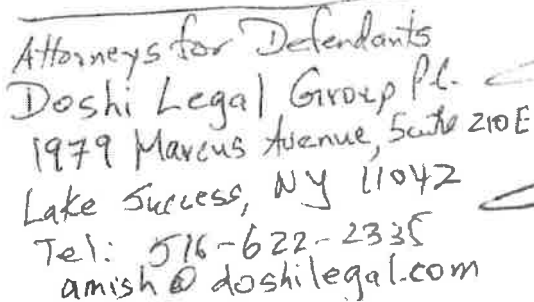 Attorneys for Defendants
Doshi Legal Group P.C.
1979 Marcus Avenue, Suite 210E
Lake Success, NY 11042
Tel: 516-622-2335
amish@doshilegal.com